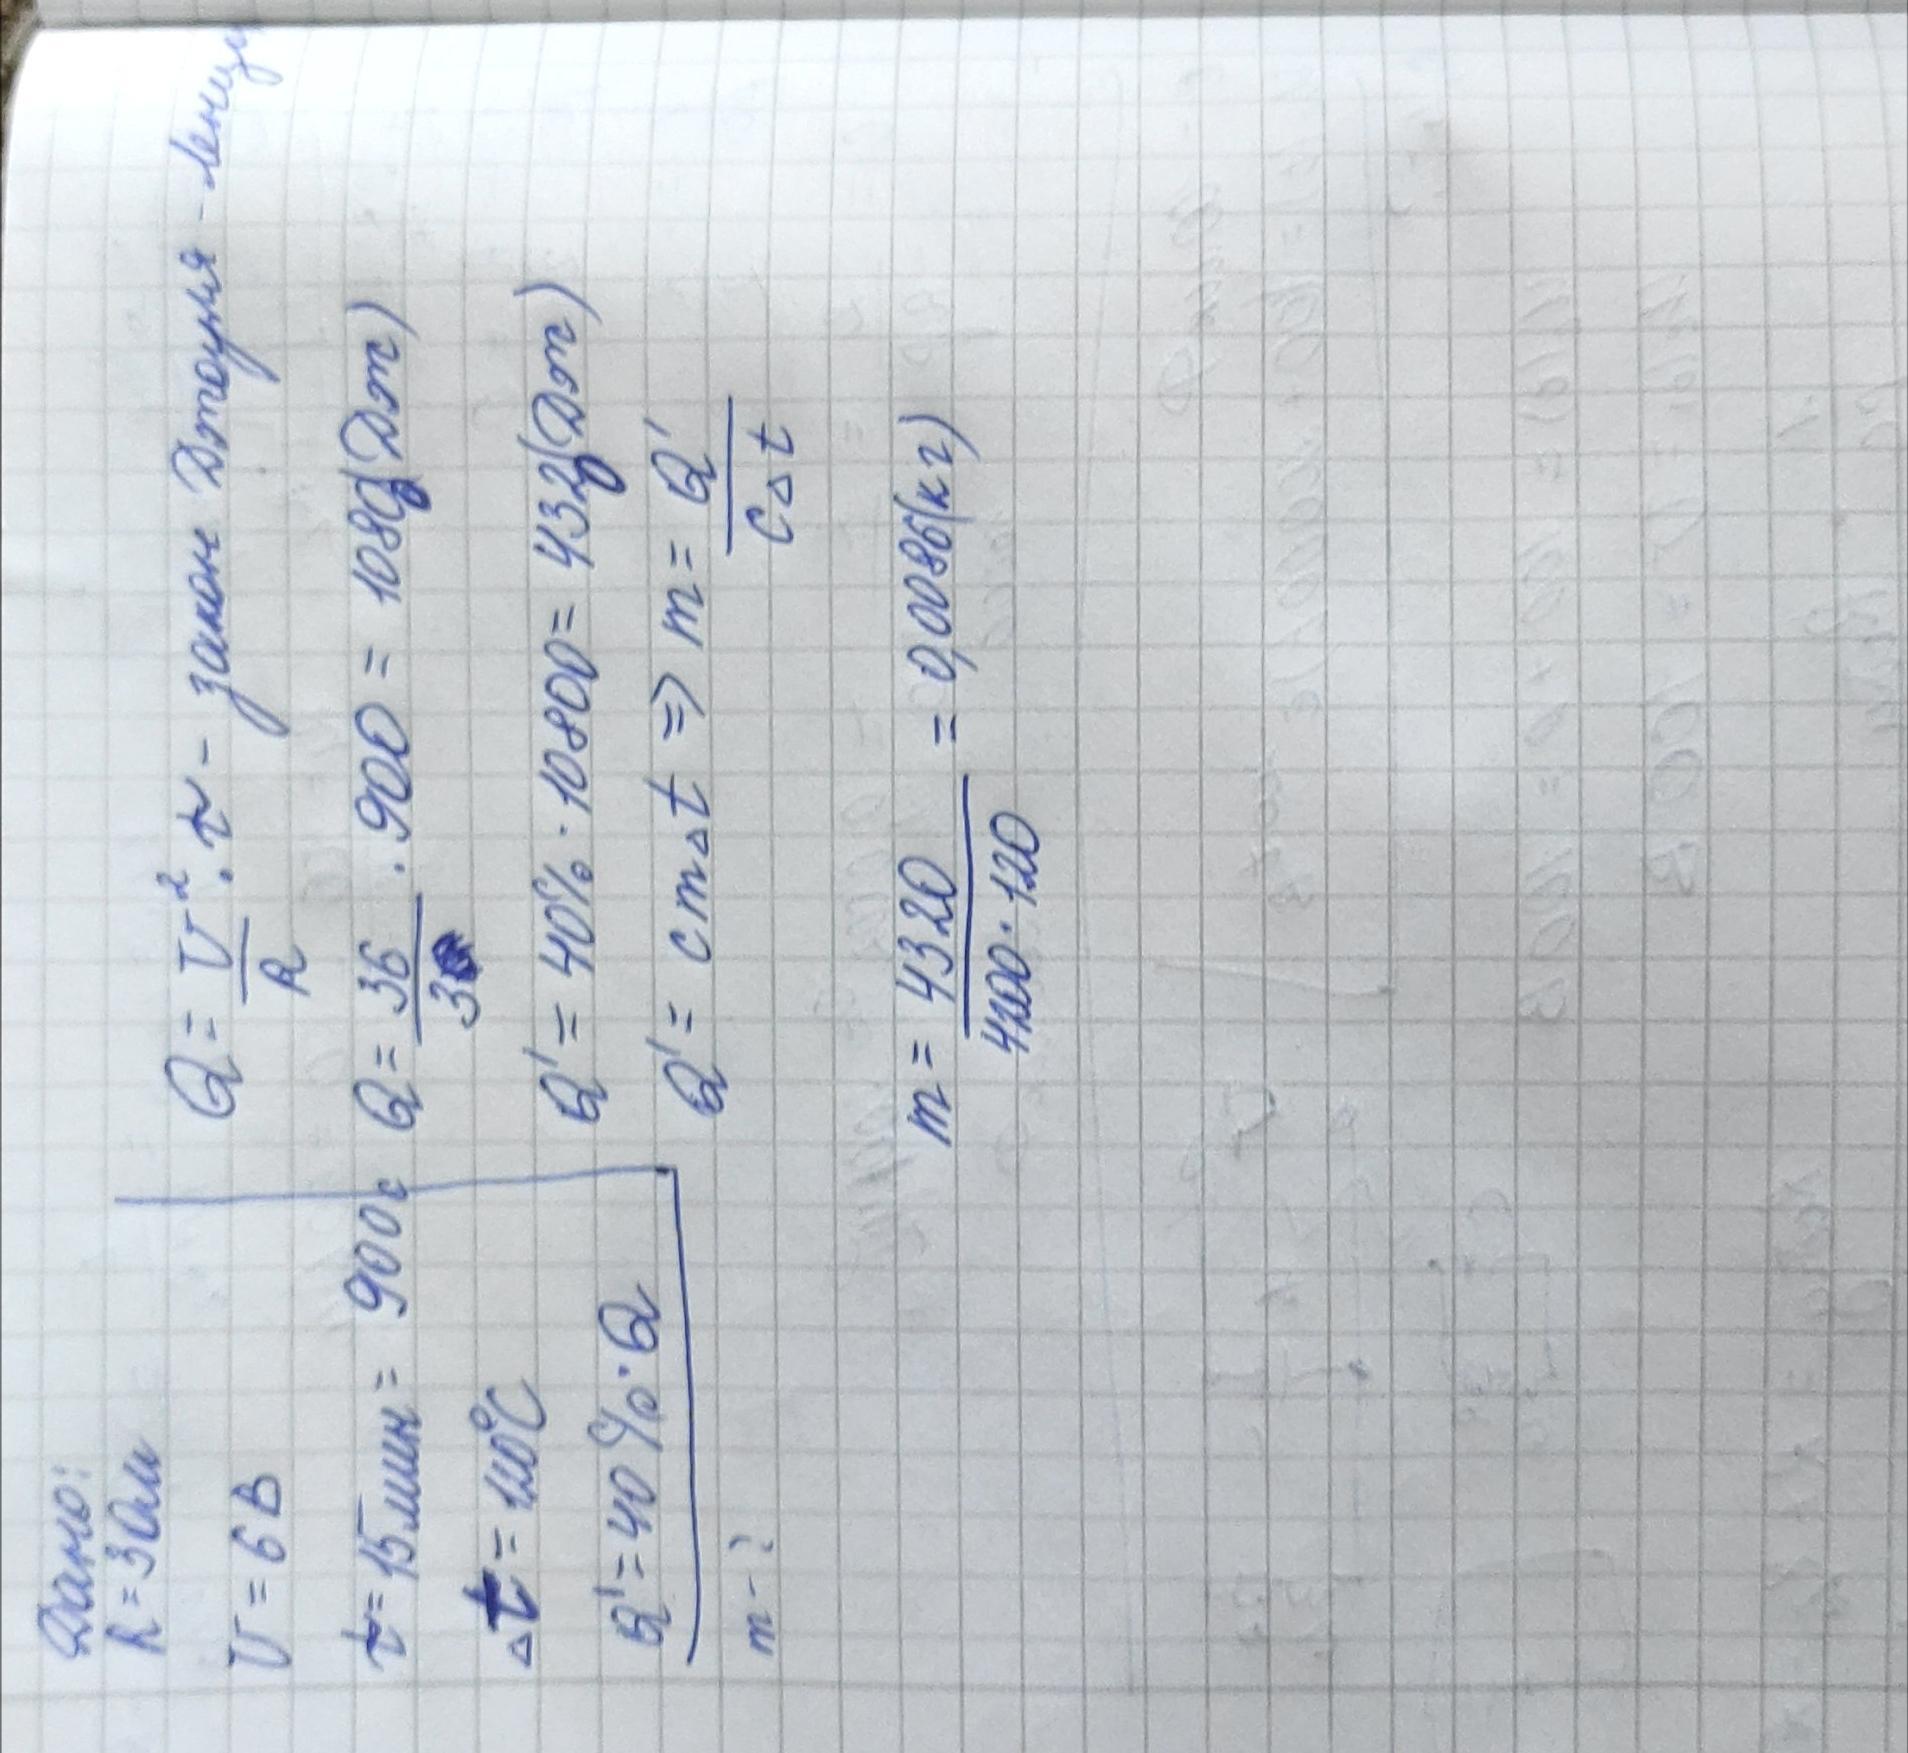 Дано:
R = 3 Ом
U = 6 В
τ = 15 мин = 900 с
Δt = 120°C
Q' = 40% · Q
m - ?
Q = U²/R · τ - закон Джоуля - Ленца
Q = 36/3 · 900 = 10800 (Дж)
Q' = 40% · 10800 = 4320 (Дж)
Q' = cmΔt => m = Q'/cΔt
m = 4320/4200·120 = 0,0086 (кг)